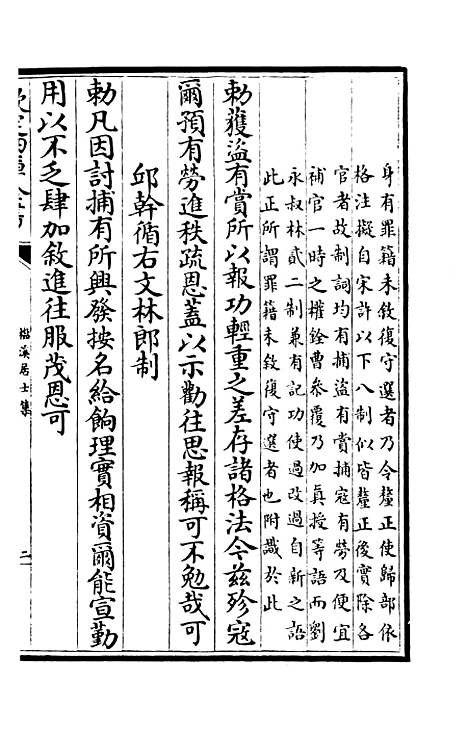 身有罪籍未敘復守選者乃令釐正使歸部依
格注擬自宋許以下八制似皆釐正後實除各
官者故制詞均有捕盜有賞捕寇有勞及便宜
補官一時之權銓曹參覆乃加真授等語而劉
永叔林貳二制兼有記功使過改過自新之語
此正所謂罪籍未敘復守選者也附識於此
勅獲盜有賞所以報功輕重之差存諸格法今茲殄寇
爾預有勞進秩疏恩蓋以示勸往思報稱可不勉哉可
邱幹循右文林郎制
勅凡因討捕有所興發按名給餉理實相資爾能宣勤
用以不乏肆加敘進往服茂恩可
欽定四庫全書
楶溪居士集
二